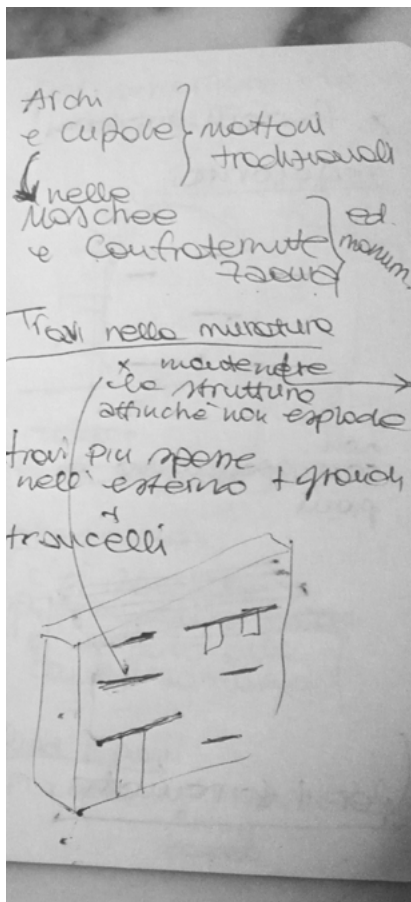 Archi
e cupole } mattoni
tradizionali
nelle
Moschee
e Confraternite } ed.
zaouia monum.
Travi nella muratura
x mantenere
la struttura
affinché non esploda
travi più spesse
nell'esterno + grandi
+
travicelli